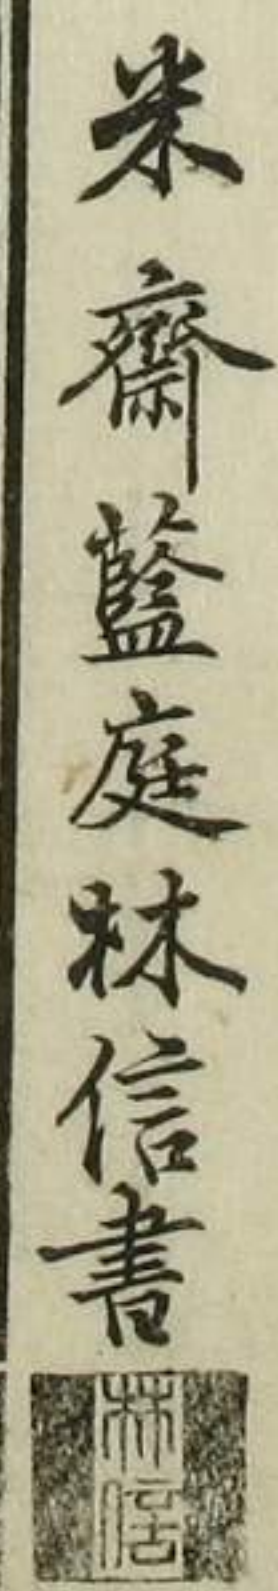 米齋藍庭林信書
林信